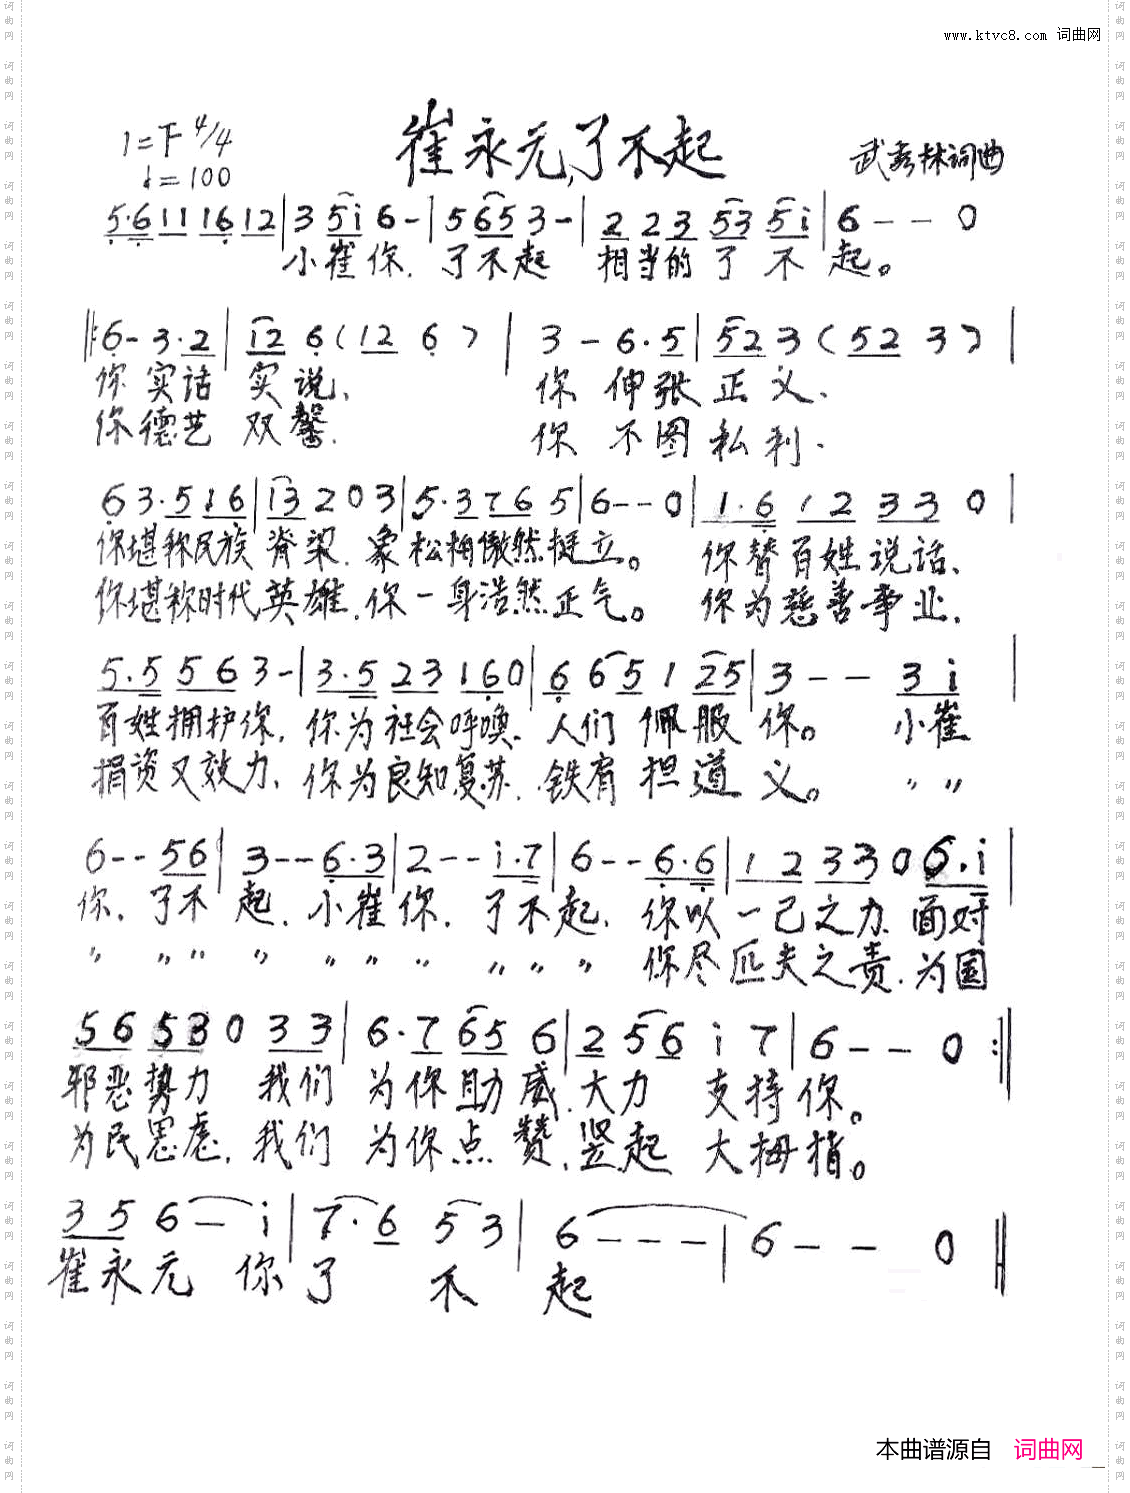 www.ktvc8.com 词曲网
崔永元,了不起
1=F 4/4
♩=100
武秀林词曲
5·6 11 16 12 | 3 5i 6 - | 5 65 3 - | 2 2 3 53 5i | 6 - - 0
小崔你,了不起 相当的了不起。
‖: 6 - 3·2 | 12 6 (12 6) | 3 - 6·5 | 52 3 (52 3) |
你实话实说, 你伸张正义.
你德艺双馨. 你不图私利.
6 3·5 16 | 13 2 0 3 | 5·3 76 5 | 6 - - 0 | 1·6 12 33 0 |
你堪称民族脊梁.象松柏傲然挺立。 你替百姓说话、
你堪称时代英雄.你一身浩然正气。 你为慈善事业.
5·5 56 3 - | 3·5 23 16 0 | 6 6 5 1 25 | 3 - - 3i |
百姓拥护你.你为社会呼唤.人们佩服你。 小崔
捐资又效力.你为良知复苏.铁肩担道义。 〃 〃
6 - - 56 | 3 - - 6·3 | 2 - - i·7 | 6 - - 6·6 | 12 33 0 6·i |
你.了不起.小崔你.了不起.你以一己之力.面对
〃 〃 〃 〃 〃 〃 〃 〃 〃 〃 你尽匹夫之责.为国
56 53 0 33 | 6·7 65 6 | 2 5 6 i 7 | 6 - - 0 :‖
邪恶势力 我们为你助威.大力支持你。
为民思虑.我们为你点赞.竖起大拇指。
35 6 - i | 7·6 5 3 | 6 - - - | 6 - - 0 ‖
崔永元你了不起
本曲谱源自 词曲网